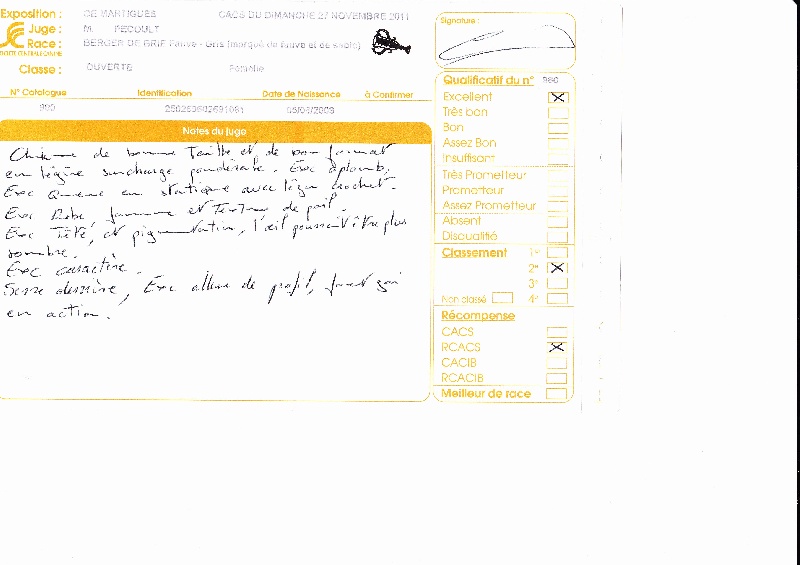 Exposition : DE MARTIGUES CACS DU DIMANCHE 27 NOVEMBRE 2011
Juge : M. PECOULT
Race : BERGER DE BRIE Fauve - Gris (marqué de fauve et de sable)
Classe : OUVERTE Femelle
N° Catalogue Identification Date de Naissance à Confirmer
Notes du juge
de bonne Taille et de bon format
en légère surcharge pondérale. Exc aplomb.
Exc Queue en statique avec léger crochet.
Exc Robe, et Texture de poil.
Exc Tête, et pigmentation, l'œil pourrait être plus
sombre.
Exc caractère.
Serre derrière, Exc allure de profil, fouet gai
en action.
Signature :
Qualificatif du n°
Excellent X
Très bon
Bon
Assez Bon
Insuffisant
Très Prometteur
Prometteur
Assez Prometteur
Absent
Disqualifié
Classement 1er
2e X
3e
Non classé 4e
Récompense
CACS
RCACS X
CACIB
RCACIB
Meilleur de race